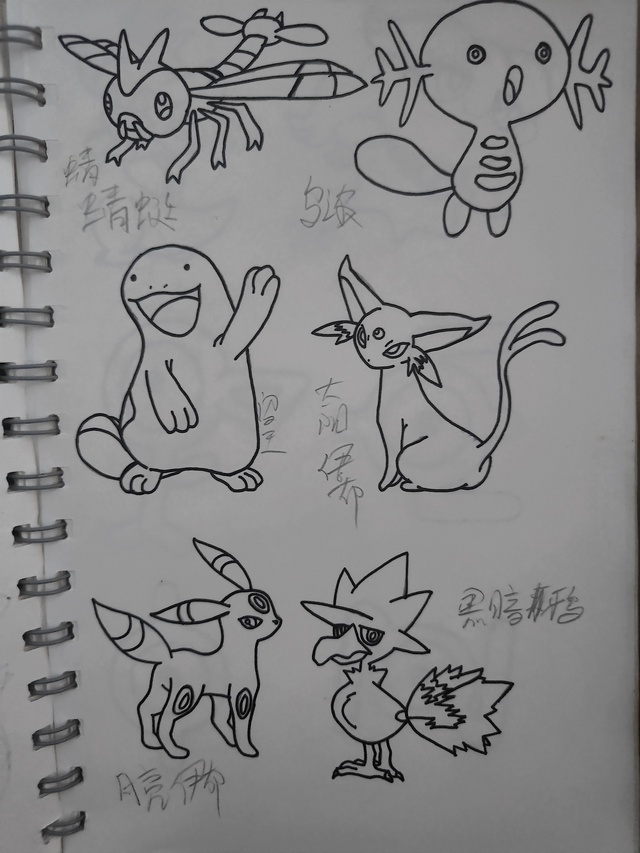 蜻
蜻蜓
乌波
沼王
太阳
伊布
黑暗鸦
月亮伊布